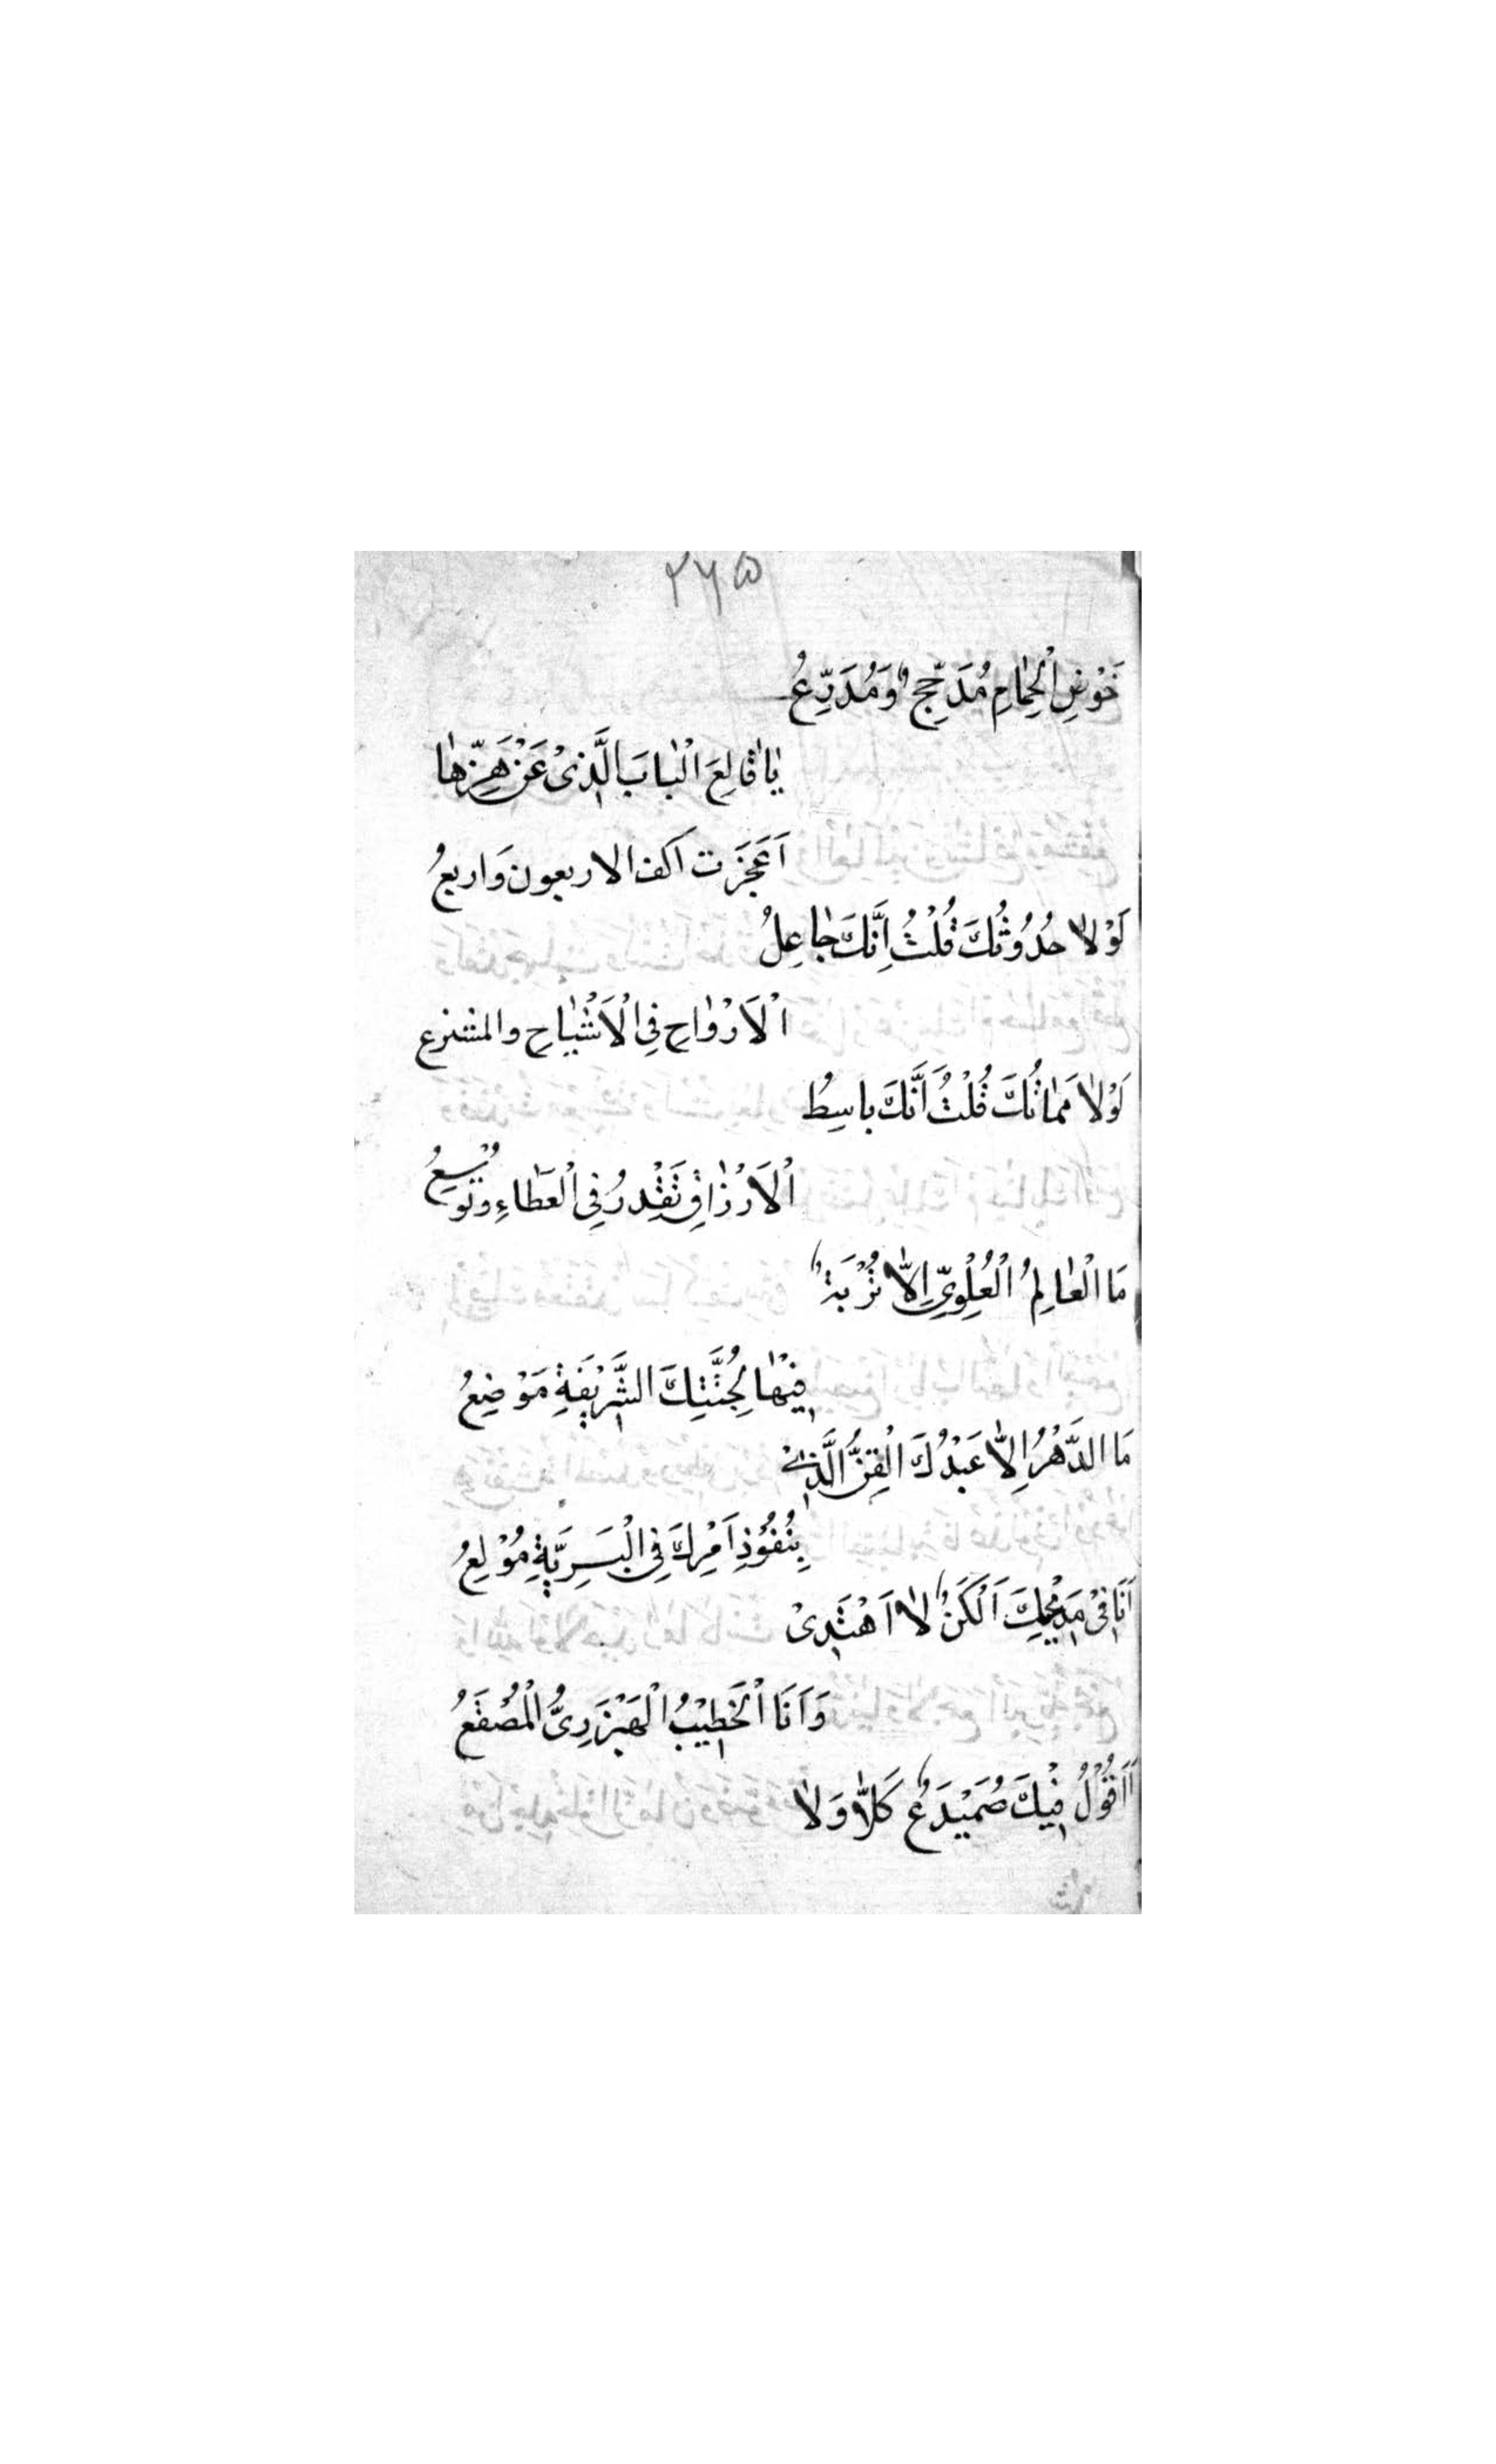 ٢٦٥
خَوْضِ الْحِمَامِ مُدَجِّجٌ وَمُدَرِّعُ
يَا قَالِعَ الْبَابِ الَّذِیْ عَنْ هَزِّهَا
اَعَجَزَت اَكف الاربعون وَاربعُ
لَوْلَا حُدُوْثُكَ قُلْتُ اِنَّكَ جَاعِلُ
اَلْاَرْوَاحِ فِی الْاَشْبَاحِ والمشنزع
لَوْلَا مَمَاتُكَ قُلْتُ اَنَّكَ بَاسِطُ
اَلْاَرْزَاقِ تَقْدِرُ فِی الْعَطَاءِ وَتُوْسِعُ
مَا الْعَالِمُ الْعُلْوِیِّ اِلَّا تُرْبَةٌ
فِيْهَا لِجُثَّتِكَ الشَّرِيْفَةِ مَوْضِعُ
مَا الدَّهْرُ اِلَّا عَبْدُكَ الْقِنُّ الَّذِیْ
بِنُفُوْذِ اَمْرِكَ فِی الْبَسَرِيَّةِ مُوْلِعُ
اَنَا فِیْ مَدِيْحِكَ اَلْكَنٌ لَا اَهْتَدِیْ
وَاَنَا الْخَطِيْبُ الْهَبْزَرِیُّ الْمُصْقَعُ
ءَاَقُوْلُ فِيْكَ صُمَيْدَعٌ كَلَّا وَلَا